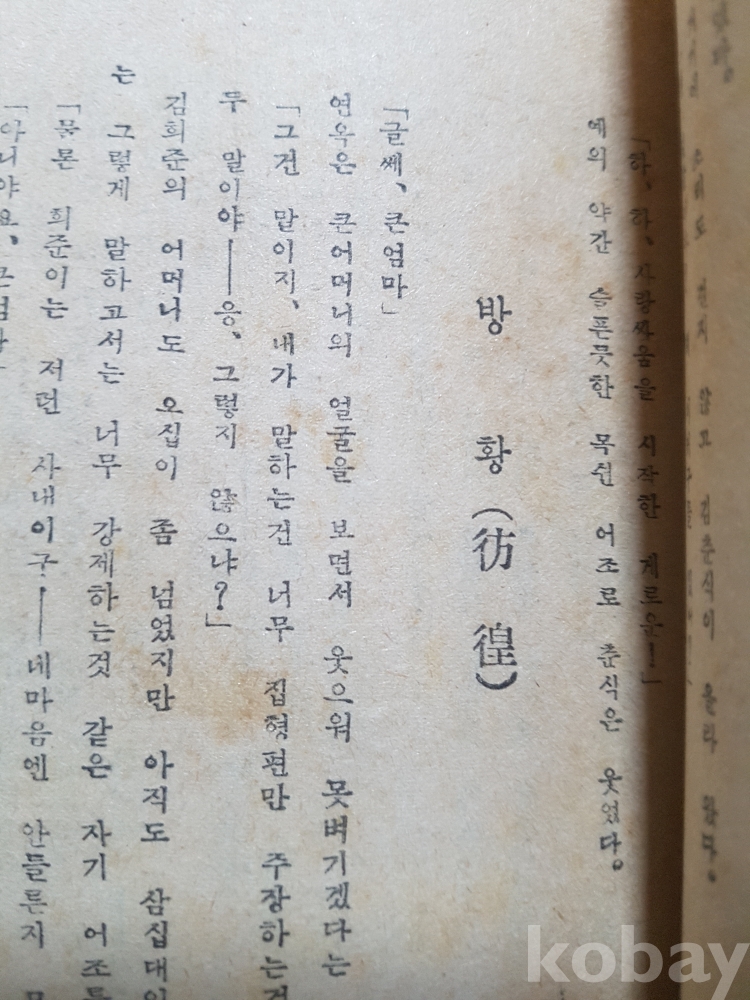 「하, 하, 사랑싸움을 시작한 게로운!」
예의 약간 슬픈듯한 목쉰 어조로 춘식은 웃었다。
방 황 (彷 徨)
「글쎄、큰엄마」
연옥은 큰어머니의 얼굴을 보면서 웃으워 못벼기겠다는
「그건 말이지、내가 말하는건 너무 집형편만 주장하는것
두 말이야──응、그렇지 않으냐?」
김희준의 어머니도 오집이 좀 넘었지만 아직도 삼십대인
는 그렇게 말하고서는 너무 강제하는것 같은 자기 어조를
「물론 희준이는 저런 사내이구──네마음엔 안들른지
「아니야요、큰엄마」
kobay